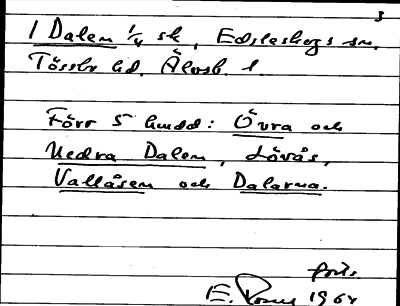 3
1 Dalen 1/4 sk, Edsleskogs sn.
Tössbo hd. Älvsb. l.
Förr 5 hmdd: Övra och
Nedra Dalen, Lövås,
Vallåsen och Dalarna.
forts.
E. 1964